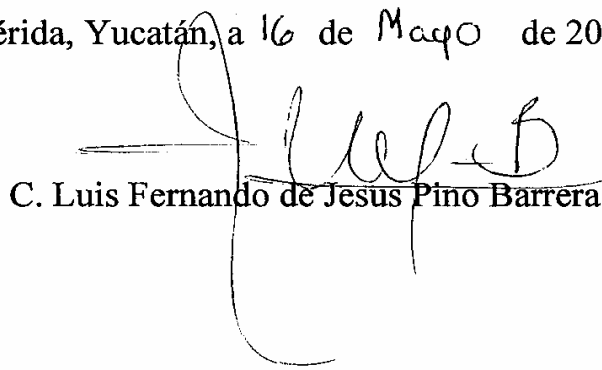 érida, Yucatán, a 16 de Mayo de 20
C. Luis Fernando de Jesus Pino Barrera